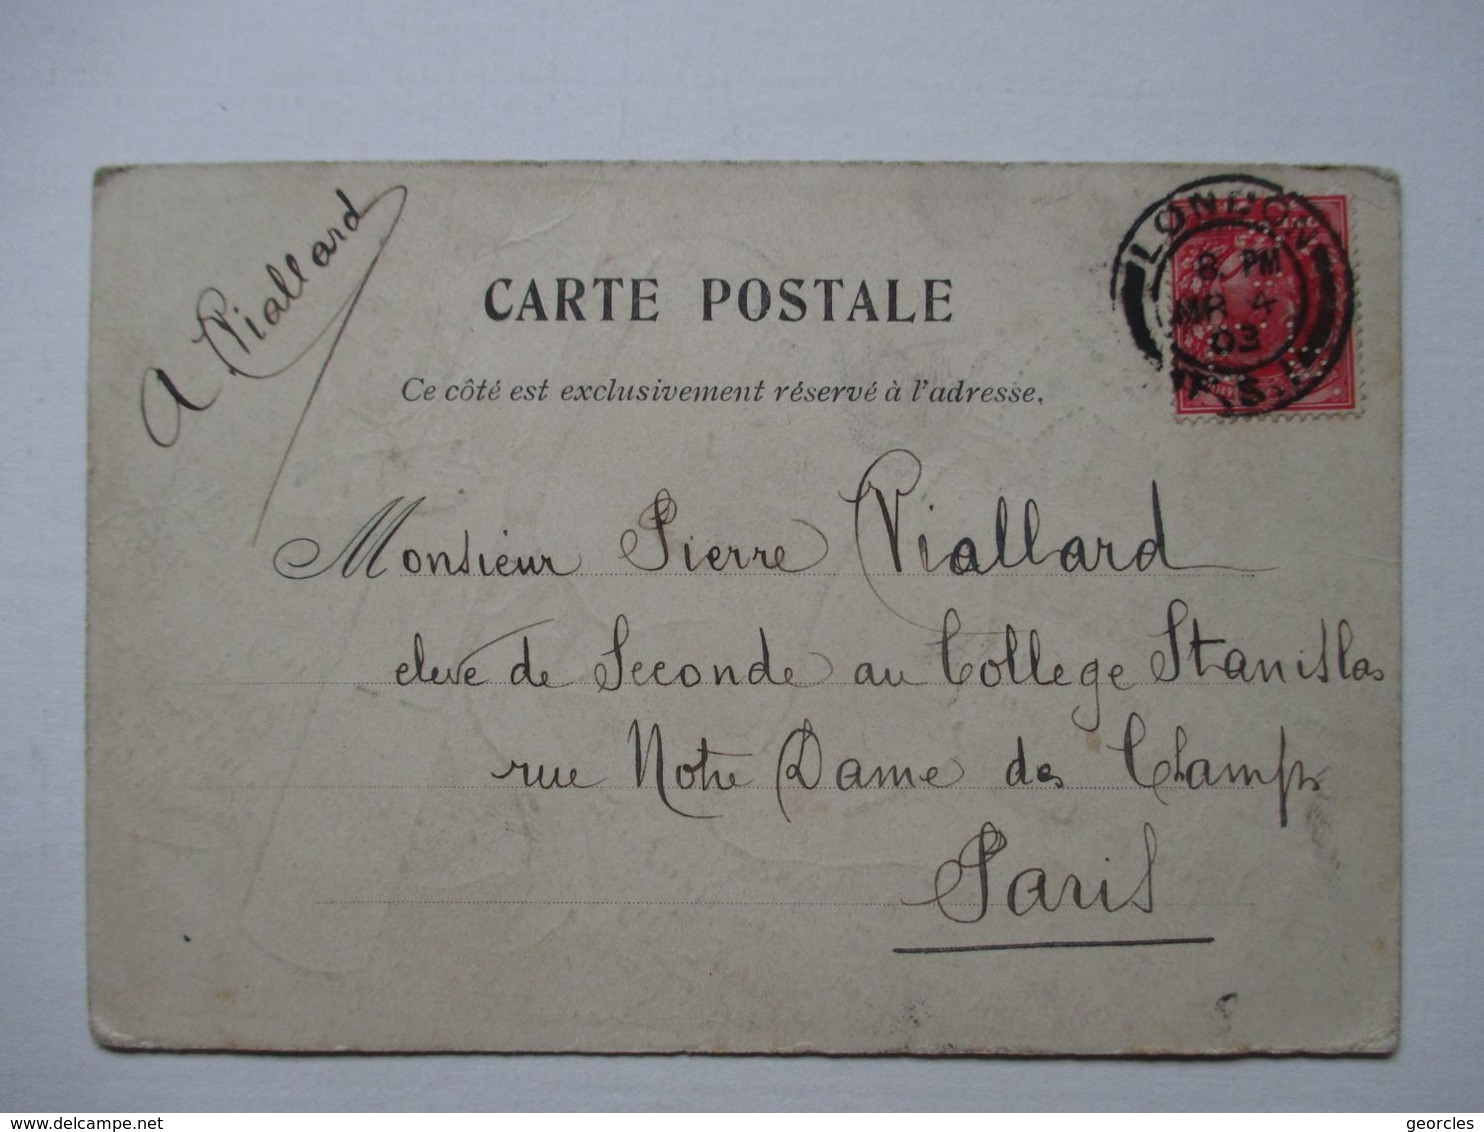 A Viallard
CARTE POSTALE
Ce côté est exclusivement réservé à l'adresse.
LONDON
8. PM
MR 4
03
Monsieur Pierre Viallard
eleve de Seconde au College Stanislas
rue Notre Dame des Champs
Paris
delcampe.net
georcles